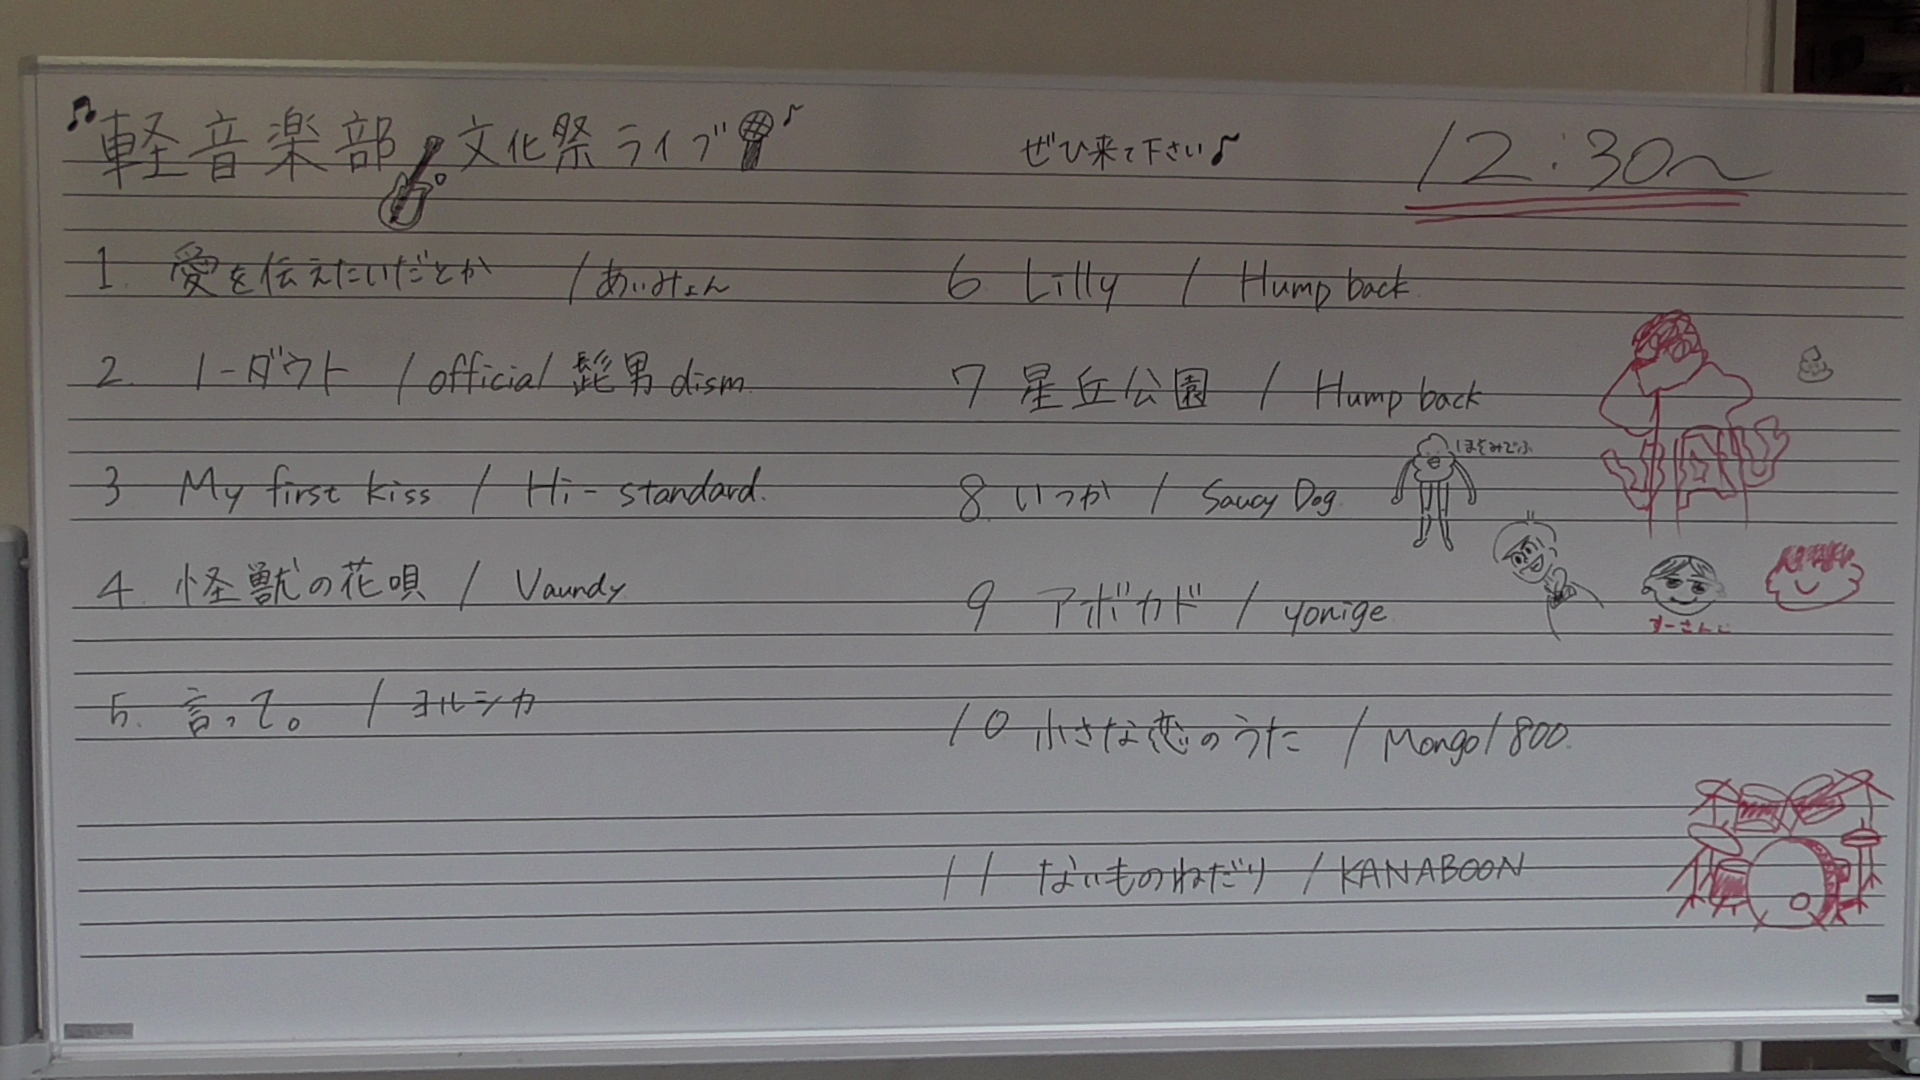 軽音楽部 文化祭ライブ
ぜひ来て下さい♪
12:30〜
1. 愛を伝えたいだとか / あいみょん
2. ノーダウト / official髭男dism.
3 My first kiss / Hi-standard.
4. 怪獣の花唄 / Vaundy
5. 言って。 / ヨルシカ
6 Lilly / Hump back.
7 星丘公園 / Hump back
8. いつか / Saucy Dog.
ほそみでぶ
9 アボカド / yonige.
すーさん
10 小さな恋のうた / Mongol800.
11 ないものねだり / KANABOON